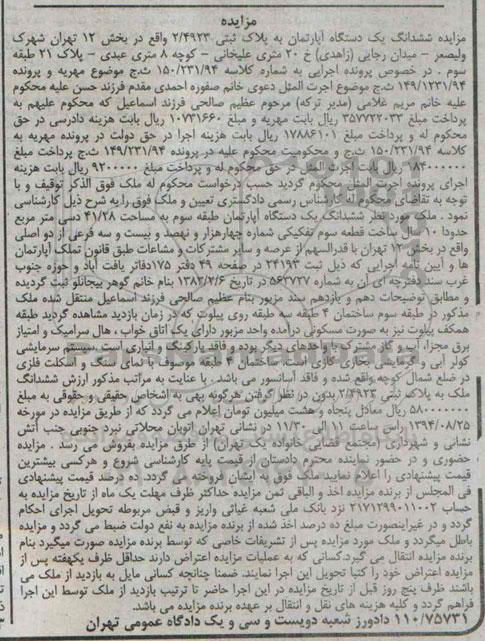 مزایده
مزایده ششدانگ یک دستگاه آپارتمان به پلاک ثبتی ۲/۴۹۲۳ واقع در بخش ۱۲ تهران شهرک
ولیعصر – میدان رجایی (زاهدی) خ ۲۰ متری علیخانی – کوچه ۸ متری عبدی – پلاک ۲۱ طبقه
سوم . در خصوص پرونده اجرایی به شماره کلاسه ۱۵۰/۲۳۱/۹۴ ث.ج موضوع مهریه و پرونده
۱۴۹/۱۲۳۱/۹۴ ث.ج موضوع اجرت المثل دعوی خانم صفوره احمدی مقدم فرزند حسن علیه محکوم
علیه خانم مریم غلامی (مدیر ترکه) مرحوم عظیم صالحی فرزند اسماعیل که محکوم علیهم به
پرداخت مبلغ ۳۵۷۷۲۲۰۳۳ ریال بابت مهریه و مبلغ ۱۰۷۳۱۶۶۰ ریال بابت هزینه دادرسی در حق
محکوم له و پرداخت مبلغ ۱۷۸۸۶۱۰۱ ریال بابت هزینه اجرا در حق دولت در پرونده مهریه به
کلاسه ۱۵۰/۲۳۱/۹۴ ث.ج و محکومیت محکوم علیه در پرونده ۱۴۹/۲۳۱/۹۴ ث.ج پرداخت مبلغ
۱۸۴۰۰۰۰۰۰ ریال بابت اجرت المثل در حق محکوم له و پرداخت مبلغ ۹۲۰۰۰۰۰ ریال بابت هزینه
اجرای پرونده اجرت المثل محکوم گردید حسب درخواست محکوم له ملک فوق الذکر توقیف و با
توجه به تقاضای محکوم له کارشناس رسمی دادگستری تعیین و ملک فوق را به شرح ذیل کارشناسی
نمود . ملک مورد نظر ششدانگ یک دستگاه آپارتمان طبقه سوم به مساحت ۴۱/۲۸ دسی متر مربع
حدودا ۱۰ سال ساخت قطعه سوم تفکیکی شماره چهارهزار و نهصد و بیست و سه فرعی از دو اصلی
واقع در بخش ۱۲ تهران با قدرالسهم از عرصه و سایر مشترکات و مشاعات طبق قانون تملک آپارتمان
ها و آیین نامه اجرایی که ذیل ثبت ۲۴۱۹۳ در صفحه ۴۹ دفتر ۱۷۵دفاتر یافت آباد و حوزه جنوب
غرب سند دفترچه ای آن به شماره ۵۶۳۷۲۷ در تاریخ ۱۳۸۲/۲/۶ بنام خانم گوهر بیجانلو ثبت گردیده
و مطابق توضیحات دهم و یازدهم سند مزبور بنام عظیم صالحی فرزند اسماعیل منتقل شده ملک
مذکور در طبقه سوم ساختمان ۴ طبقه سه طبقه روی پیلوت که در زمان بازدید مشاهده گردید طبقه
همکف پیلوت نیز به صورت مسکونی درآمده واحد مزبور دارای یک اتاق خواب ، هال سرامیک و امتیاز
برق مجزا، آب و گاز مشترک با واحدهای دیگر بوده و فاقد پارکینگ و انباری است . سیستم سرمایشی
کولر آبی و گرمایشی بخاری گازی است. ساختمان ۴ طبقه موصوف با نمای سنگ و اسکلت فلزی
در ضلع شمال کوچه واقع شده و فاقد آسانسور می باشد . با عنایت به مراتب مذکور ارزش ششدانگ
ملک به پلاک ثبتی ۲/۴۹۲۳ بدون در نظر گرفتن هرگونه بهی به اشخاص حقیقی و حقوقی به مبلغ
۵۸۰۰۰۰۰۰۰ ریال معادل پنجاه و هشت میلیون تومان اعلام می گردد که از طریق مزایده در مورخه
۱۳۹۴/۰۸/۲۵ راس ساعت ۱۱ الی ۱۱/۳۰ در نشانی تهران اتوبان محلاتی نبرد جنوبی جنب آتش
نشانی و شهرداری (مجتمع قضایی خانواده یک تهران) از طرق مزایده بفروش می رسد . مزایده
حضوری و در حضور نماینده محترم دادستان از قیمت پایه کارشناسی شروع و هرکسی بیشترین
قیمت پیشنهادی را اعلام نمایید ملک فوق به ایشان فروخته می گردد. ده درصد قیمت پیشنهادی
فی المجلس از برنده مزایده اخذ و الباقی ثمن مزایده حداکثر ظرف مهلت یک ماه از تاریخ مزایده به
حساب ۲۱۷۱۲۹۹۰۱۱۰۰۲ نزد بانک ملی شعبه غیاثی واریز و قبض مربوطه تحویل اجرای احکام
گردد و در غیراینصورت مبلغ ده درصد اخذ شده از برنده مزایده به نفع دولت ضبط می گردد و مزایده
باطل میگردد و ملک مورد مزایده پس از تشریفات خاصی که توسط برنده مزایده صورت میگیرد بنام
برنده مزایده انتقال می گیرد.کسانی که به عملیات مزایده اعتراض دارند حداقل ظرف یکهفته پس از
مزایده اعتراض خود را کتبا تحویل این اجرا نمایند. ضمنا چنانچه کسانی مایل به بازدید از ملک می
باشند ظرف پنج روز قبل از تاریخ مزایده در این اجرا حاضر تا ترتیب بازدید از ملک توسط این اجرا
فراهم گردد و کلیه هزینه های نقل و انتقال بر عهده برنده مزایده می باشد.
۱۱۰/۷۵۷۳۱ دادورز شعبه دویست و سی و یک دادگاه عمومی تهران